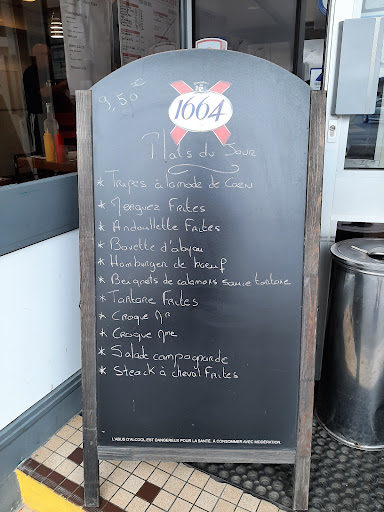 1664
9,50€
Plats du Jour
* Tripes à la mode de Caen
* Merguez Frites
* Andouillette Frites
* Bavette d'aloyau
* Hamburger de bœuf
* Beignets de calamars sauce tartare
* Tartare Frites
* Croque Mr
* Croque Mme
* Salade campagnarde
* Steack à cheval Frites
L'ABUS D'ALCOOL EST DANGEREUX POUR LA SANTÉ. À CONSOMMER AVEC MODÉRATION.